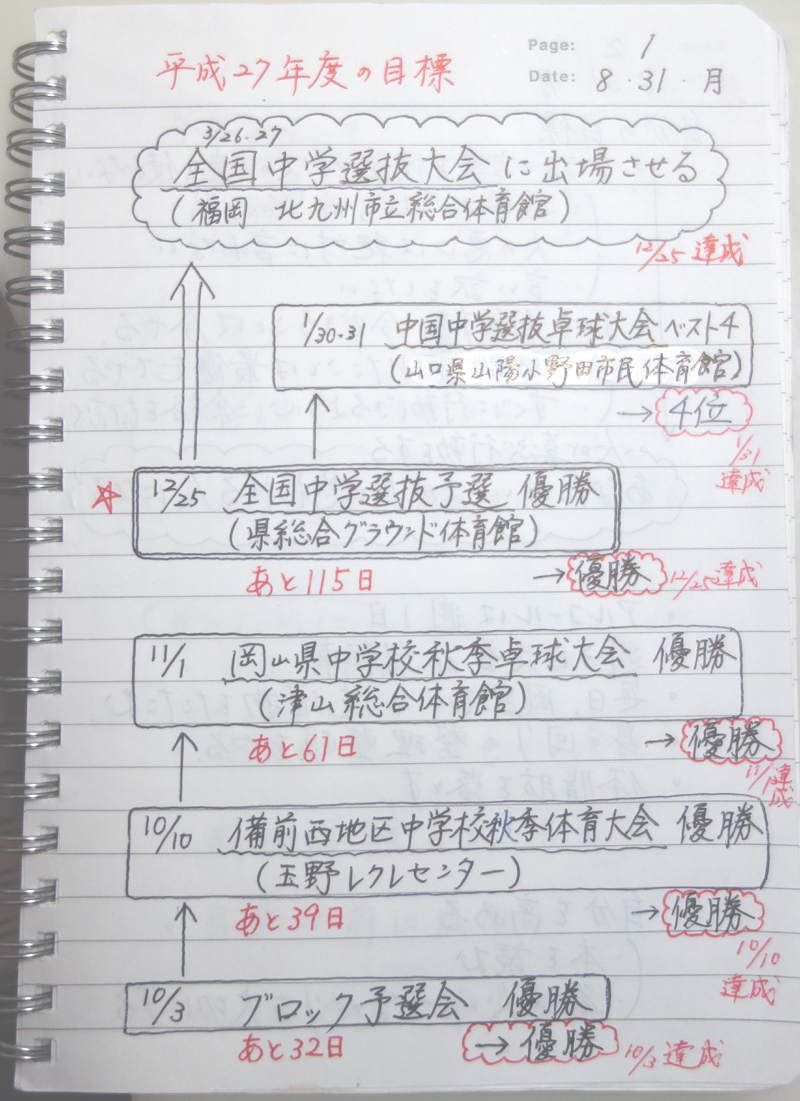 Page: 1
平成27年度の目標
Date: 8・31・月
3/26.27
全国中学選抜大会に出場させる
(福岡 北九州市立総合体育館)
12/25 達成
1/30.31 中国中学選抜卓球大会 ベスト4
(山口県山陽小野田市民体育館)
→ 4位
1/31
達成
☆ 12/25 全国中学選抜予選 優勝
(県総合グラウンド体育館)
あと115日 → 優勝 12/25達成
11/1 岡山県中学校秋季卓球大会 優勝
(津山総合体育館)
あと61日 → 優勝
11/1達成
10/10 備前西地区中学校秋季体育大会 優勝
(玉野レクレセンター)
あと39日 → 優勝
10/10
達成
10/3 ブロック予選会 優勝
あと32日 → 優勝 10/3達成